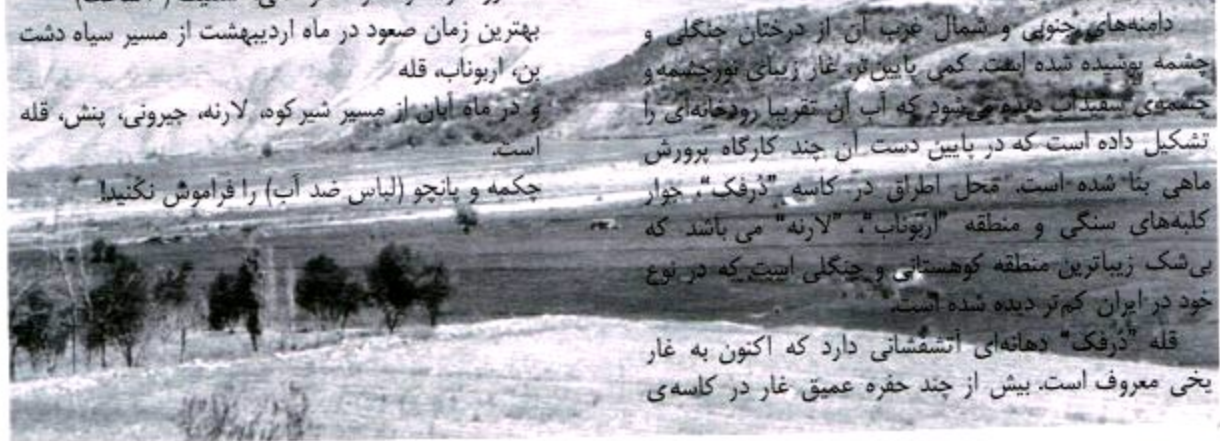 دامنه‌های جنوبی و شمال غرب آن از درختان جنگلی و
چشمه پوشیده شده است. کمی پایین‌تر، غار زیبای نورچشمه و
چشمه‌ی سفیدآب دیده می‌شود که آب آن تقریبا رودخانه‌ای را
تشکیل داده است که در پایین دست آن چند کارگاه پرورش
ماهی بنا شده است. محل اطراق در کاسه "دُرفک"، جوار
کلبه‌های سنگی و منطقه "اربوناب"، "لارنه" می باشد که
بی‌شک زیباترین منطقه کوهستانی و جنگلی است که در نوع
خود در ایران کم‌تر دیده شده است.
قله "دُرفک" دهانه‌ای آتشفشانی دارد که اکنون به غار
یخی معروف است. بیش از چند حفره عمیق غار در کاسه‌ی
بهترین زمان صعود در ماه اردیبهشت از مسیر سیاه دشت
بن، اربوناب، قله
و در ماه آبان از مسیر شیر کود، لارنه، جیرونی، پنش، قله
است.
چکمه و پانچو (لباس ضد آب) را فراموش نکنید!